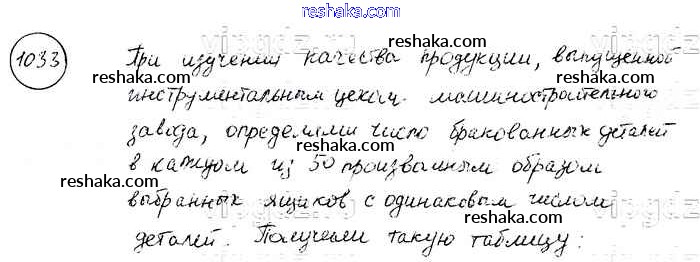 reshaka.com
1033 При изучении качества продукции, выпущенной
инструментальным цехом машиностроительного
завода, определяли число бракованных деталей
в каждом из 50 произвольным образом
выбранных ящиков с одинаковым числом
деталей. Получили такую таблицу:
reshaka.com
reshaka.com
reshaka.com
reshaka.com
reshaka.com
reshaka.com
reshaka.com
reshaka.com